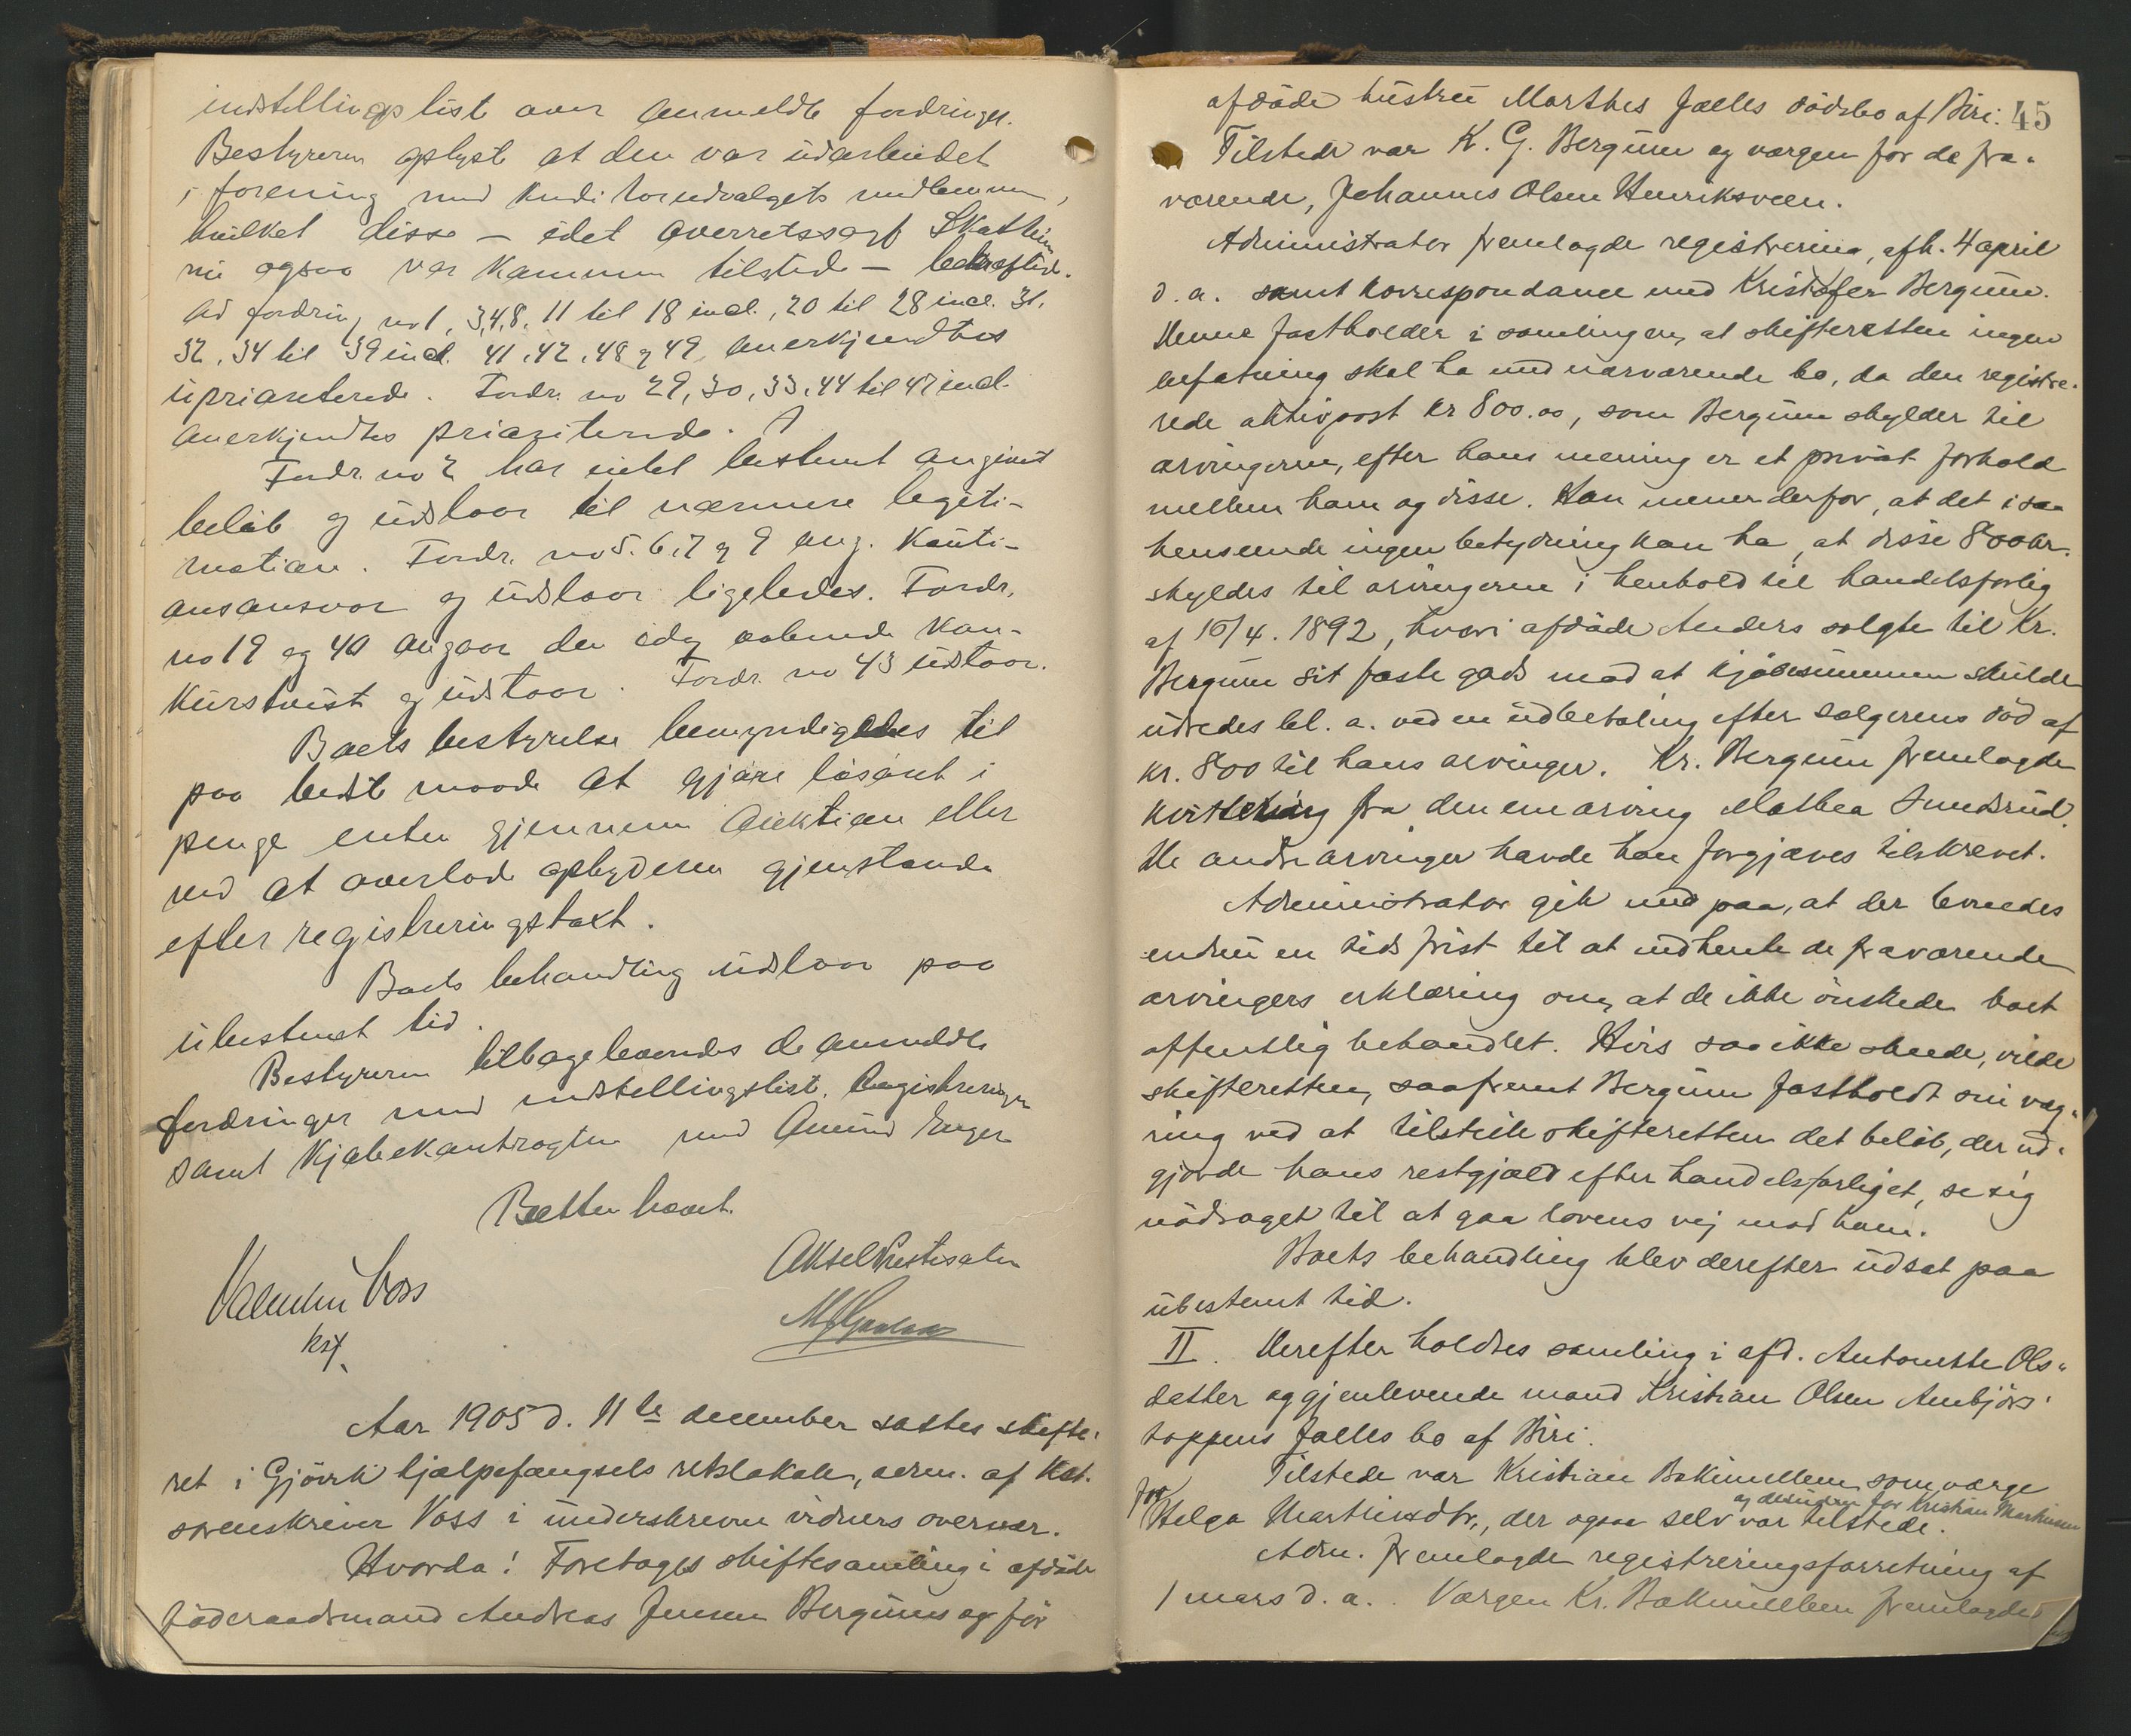 indstillingsliste over anmeldte fordringer.
Bestyreren oplyste at den var udarbeidet
i forening med kreditorudvalgets medlemmer,
hvilket disse — idet overretssagf. Skatheim
nu ogsaa var kommen tilstede — bekræftede.
Ad fordring no 1, 3, 4, 8, 11 til 18 incl., 20 til 28 incl. 31.
32, 34 til 39 incl. 41, 42, 48 og 49 anerkjendtes
uprioriterede. Fordr. no 29, 30, 33, 44 til 47 incl.
anerkjendtes prioriterede.
Fordr. no 2 har intet bestemt angivet
beløb og udstaar til nærmere legiti-
mation. Fordr. no 5. 6, 7 og 9 ang. kauti-
onsansvar og udstaar ligeledes. Fordr.
no 19 og 40 angaar den idag aabnede kon-
kurs og udstaar. Fordr. no 43 udstaar.
Boets bestyrelse bemyndigedes til
paa bedste maade at gjøre løsøret i
penge enten gjennem auktion eller
ved at overlade opbyderen gjenstande
efter registreringstakst.
Boets behandling udstaar paa
ubestemt tid.
Bestyreren tilbageleveredes de anmeldte
fordringer med indstillingslist. Registreringen
samt kjøbekontragten med Amund Enger
Retten hævet.
Valentin Voss
kst.
Aksel
Aar 1905 d. 11te december sattes skifte-
ret i Gjøvik hjælpefængsels retslokale, adm. af kst.
sorenskriver Voss i underskrevne vidners overvær.
Hvorda! Foretoges skiftesamling i afdøde
føderaadsmand Andreas Jensen Bergums og før
45
afdøde hustru Marthes fælles dødsbo af Biri.
Tilstede var K. G. Bergum og værgen for de fra-
værende, Johannes Olsen Henriksveen.
Administrator fremlagde registrering, afh. 4 april
d. a. samt korrespondance med Kristofer Bergum.
Denne fastholder i samlingen, at skifteretten ingen
befatning skal ha med nærværende bo, da den registre-
rede aktivpost kr 800.00, som Bergum skylder til
arvingerne, efter hans mening er et privat forhold
mellem ham og disse. Han mener derfor, at det i saa
henseende ingen betydning kan ha, at disse 800 kr.
skyldes til arvingerne i henhold til handelsforlig
af 10/4. 1892, hvori afdøde Anders solgte til Kr.
Bergum sit faste gods mod at kjøbesummen skulde
udredes bl. a. ved en udbetaling efter sælgerens død af
kr. 800 til hans arvinger. Kr. Bergum fremlagde
kvittering fra den ene arving Mathea Sundsrud.
De andre arvinger havde han forgjæves tilskrevet.
Administrator gik med paa, at der levnedes
endnu en tids frist til at indhente de fraværende
arvingers erklæring om, at de ikke ønskede boet
offentlig behandlet. Hvis saa ikke skede, vilde
skifteretten, saafremt Bergum fastholdt sin væg-
ring ved at tilstille skifteretten det beløb, der ud-
gjorde hans restgjæld efter handelsforliget, se sig
nødsaget til at gaa lovens vej mod ham.
Boets behandling blev derefter udsat paa
ubestemt tid.
II. Derefter holdtes samling i afd. Antonette Ols-
datter og gjenlevende mand Kristian Olsen Aubjørs-
toppens fælles bo af Biri.
Tilstede var Kristian Bakimellem som værge
og desuden for Kristian Martinsen
for Helga Martinsdtr., der ogsaa selv var tilstede.
Adm. fremlagde registreringsforretning af
1 mars d. a.. Værgen Kr. Bakimellem fremlagde